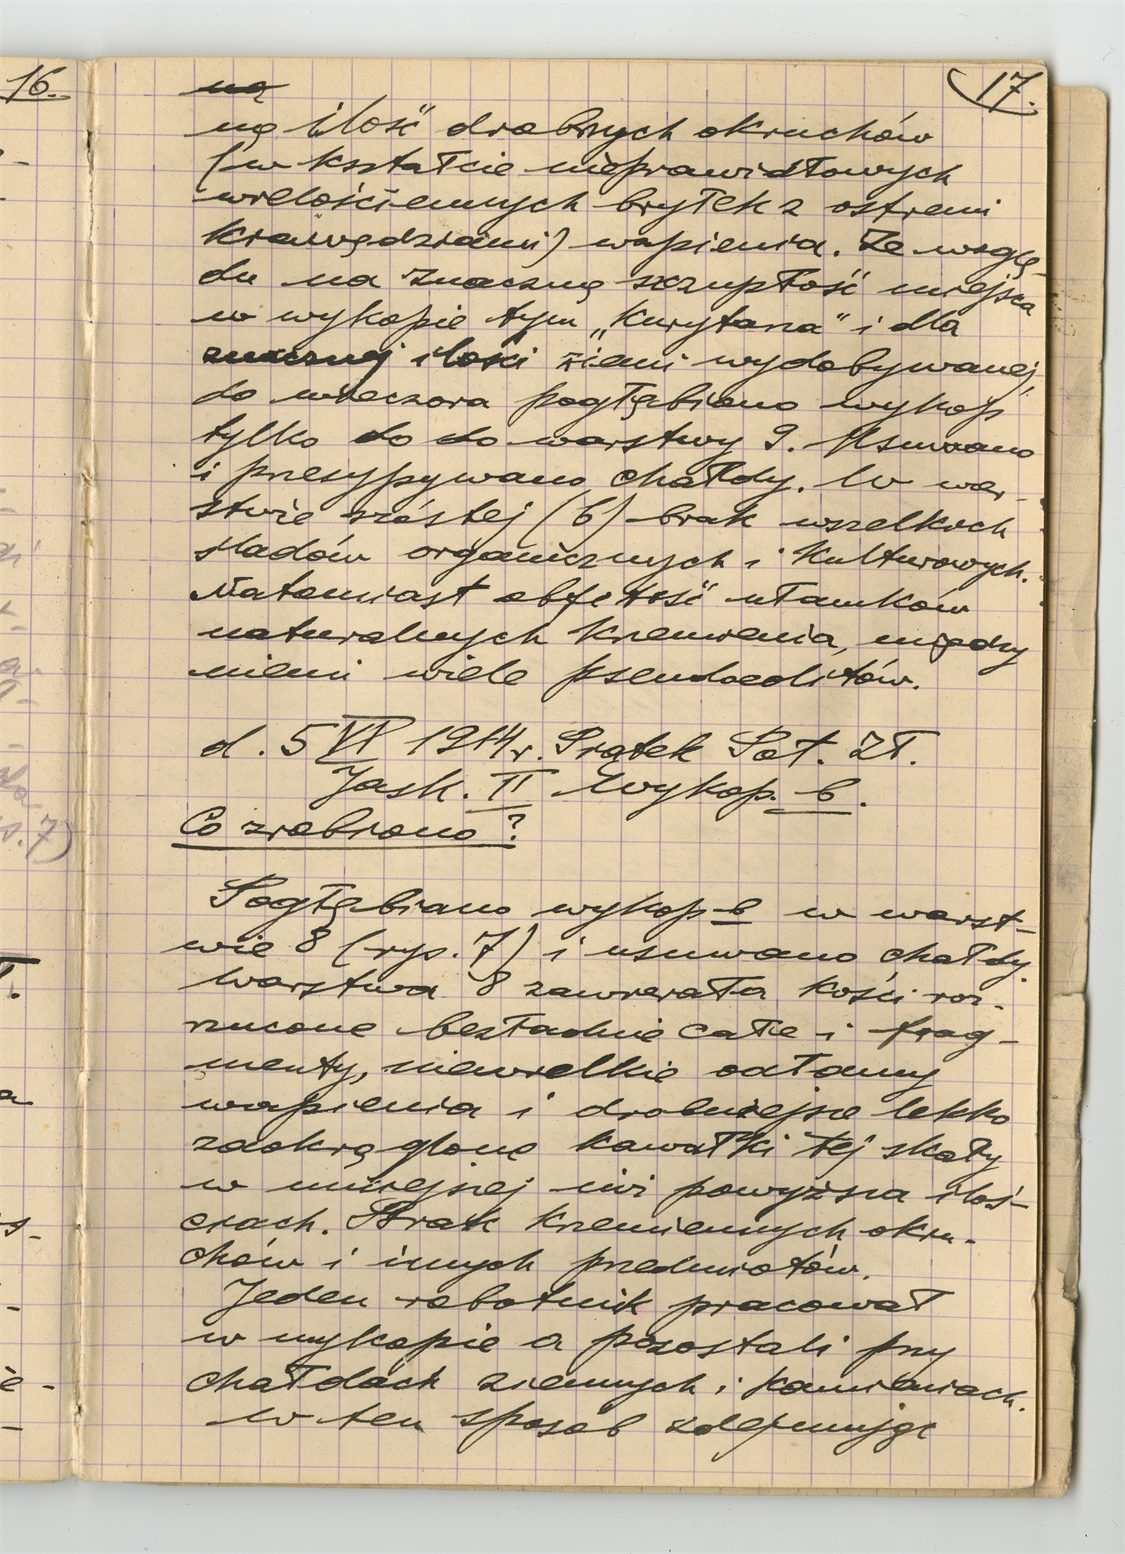 16.
17.
ną
ną ilość drobnych okruchów
(w kształcie nieprawidłowych
wielościennych bryłek z ostremi
krawędziami) wapienia. Ze wzglę-
du na znaczną szczupłość miejsca
w wykopie tym „Kurytarza" i dla
znacznej ilości ziemi wydobywanej,
do wieczora pogłębiono wykop
tylko do do warstwy 9. Usuwano
i przesypywano chałdy. W war-
stwie szóstej (6) brak wszelkich
śladów organicznych i kulturowych.
Natomiast obfitość ułamków
naturalnych krzemienia, między
niemi wiele pseudoeolitów.
d. 5 VI 1914 r. Piątek Pot. Zł.
Jask. II Wykop. b.
Co zrobiono?
Pogłębiano wykop b w warst-
wie 8 (ryc. 7) i usuwano chałdy.
Warstwa 8 zawierała kości roz-
rzucone bezładnie całe i frag-
menty, niewielkie odłamy
wapienia i drobniejsze lekko
zaokrąglone kawałki tej skały
w mniejszej niż powyższa iloś-
ciach. Brak krzemiennych okru-
chów i innych przedmiotów.
Jeden robotnik pracował
w wykopie a pozostali przy
chałdach ziemnych i kamieniach.
W ten sposób zdejmując